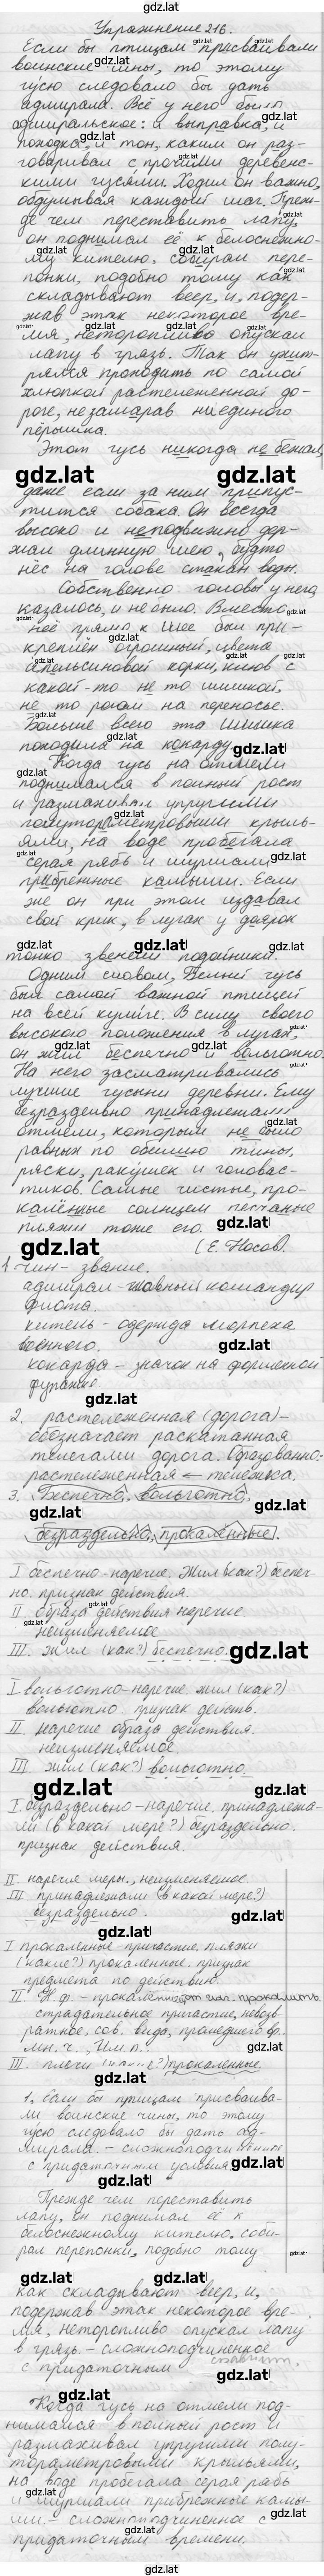 gdz.lat
Упражнение 216.
Если бы птицам присваивали
воинские чины, то этому
гусю следовало бы дать
адмирала. Всё у него было
адмиральское: и выправка, и
походка, и тон, каким он раз-
говаривал с прочими деревенс-
кими гусями. Ходил он важно,
обдумывая каждый шаг. Преж-
де чем переставить лапу,
он поднимал её к белоснежно-
му кителю, собирал пере-
понки, подобно тому как
складывают веер, и, подер-
жав этак некоторое вре-
мя, неторопливо опускал
лапу в грязь. Так он ухит-
рялся проходить по самой
хлюпкой растележенной до-
роге, не замарав ни единого
пёрышка.
Этот гусь никогда не бежал,
gdz.lat gdz.lat
даже если за ним припус-
тится собака. Он всегда
высоко и неподвижно дер-
жал длинную шею, будто
нёс на голове стакан воды.
Собственно головы у него,
казалось, и не было. Вместо
неё прямо к шее был при-
креплён огромный, цвета
апельсиновой корки, клюв с
какой-то не то шишкой,
не то рогом на переносье.
Больше всего эта шишка
походила на кокарду. gdz.lat
Когда гусь на отмели
поднимался в полный рост
и размахивал упругими
полутораметровыми крыль-
ями, на воде пробегала
серая рябь и шуршали gdz.lat
прибрежные камыши. Если
же он при этом издавал
свой крик, в лугах у доярок
gdz.lat gdz.lat gdz.lat
тонко звенели подойники.
Одним словом, Белый гусь
был самой важной птицей
на всей кулиге. В силу своего
высокого положения в лугах,
он жил беспечно и вольготно.
На него засматривались
лучшие гусыни деревни. Ему
безраздельно принадлежали
отмели, которым не было
равных по обилию тины,
ряски, ракушек и головас-
тиков. Самые чистые, про-
калённые солнцем песчаные
пляжи тоже его. gdz.lat
gdz.lat (Е. Носов).
1 Чин - звание.
адмирал - главный командир
флота.
китель - одежда моряка
военного. gdz.lat
кокарда - значок на форменной
фуражке
gdz.lat
2. растележенная (дорога)-
обозначает раскатанная
телегами дорога. Образованно:
растележенная ← тележка.
3. Беспечно, вольготно,
gdz.lat gdz.lat
безраздельно, прокалённые.
I беспечно - наречие. Жил (как?) беспеч-
но. признак действия.
II образа действия наречие.
неизменяемое
III. жил (как?) беспечно. gdz.lat
I вольготно - наречие. жил (как?)
вольготно. признак действ.
II. наречие образа действия.
неизменяемое.
III. жил (как?) вольготно.
gdz.lat gdz.lat
I безраздельно - наречие, принадлежа-
ли (в какой мере?) безраздельно.
признак действия.
II. наречие меры, неизменяемое.
III. принадлежали (в какой мере?)
безраздельно. gdz.lat
gdz.lat
I прокалённые - причастие, пляжи
(какие?) прокалённые. признак
предмета по действию.
II. Н.ф. - прокаленный, от гл. прокалить,
страдательное причастие, невозв-
ратное, сов. вида, прошедшего вр.
мн. ч., Им. п. gdz.lat
III. (какие?) прокалённые.
gdz.lat
1. Если бы птицам присваива-
ли воинские чины, то этому
гусю следовало бы дать ад-
мирала. - сложноподчинённое
с придаточным условия. gdz.lat
gdz.lat
Прежде чем переставить
лапу, он поднимал её к
белоснежному кителю, соби-
рал перепонки, подобно тому
gdz.lat gdz.lat
как складывают веер, и,
подержав этак некоторое вре-
мя, неторопливо опускал лапу
в грязь. - сложноподчинённое
с придаточным
gdz.lat
gdz.lat
Когда гусь на отмели под-
нимался в полный рост и
размахивал упругими полу-
тораметровыми крыльями,
на воде пробегала серая рябь
и шуршали прибрежные камы-
ши. - сложноподчинённое с
придаточным времени.
gdz.lat